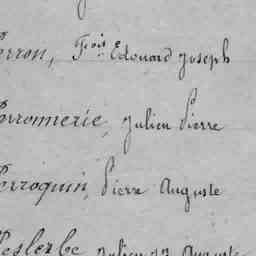 erron, Fois Edouard Joseph
erronnerie, Julien Pierre
erroquin, Pierre Auguste
Julien Auguste